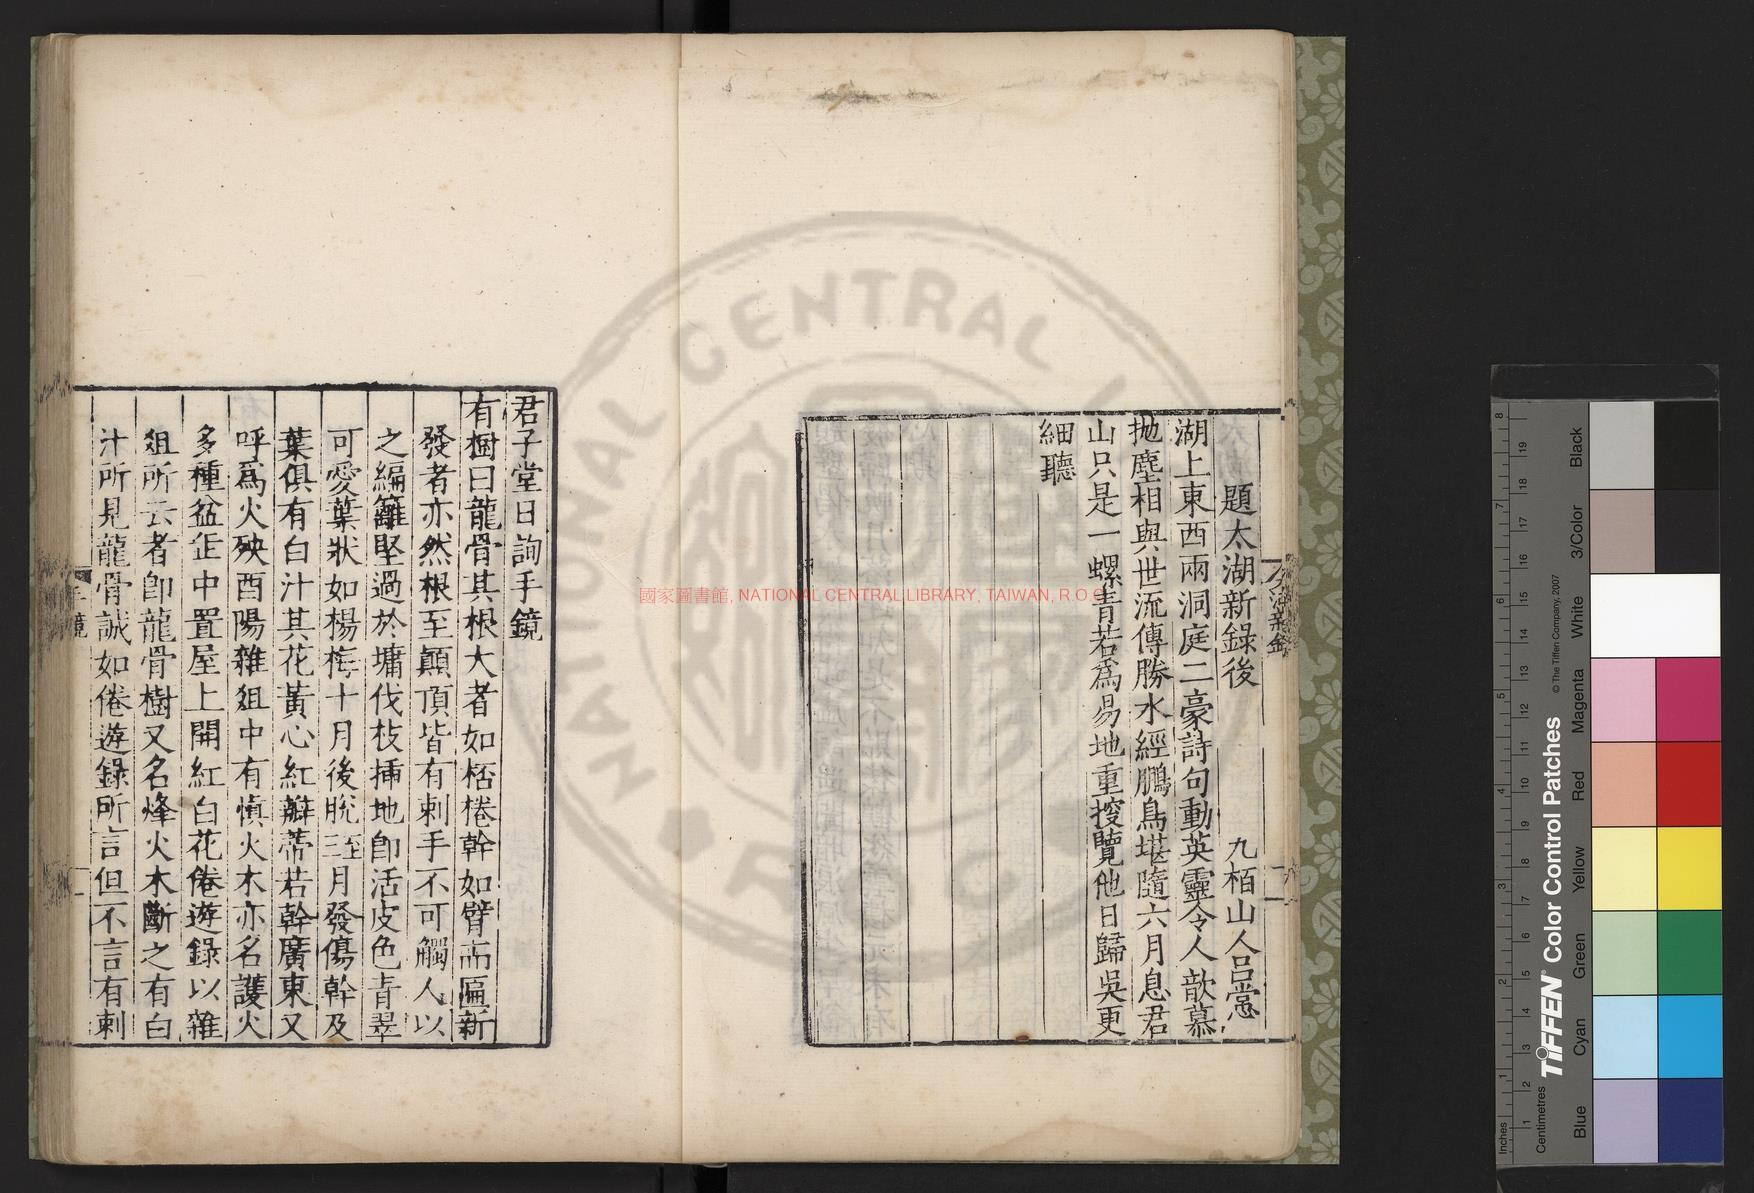 題太湖新錄後
九栢山人呂㦂
湖上東西兩洞庭二豪詩句動英靈令人歆慕
拋塵相與世流傳勝水經鵬鳥堪隨六月息君
山只是一螺青若爲易地重㨨覽他日歸吳更
細聽
君子堂日詢手鏡
有樹曰龍骨其根大者如桮棬幹如臂而匾新
發者亦然根至顚頂皆有刺手不可觸人以
之編籬堅過於墉伐枝揷地卽活皮色青翠
可愛葉狀如楊梅十月後脫至三月發傷幹及
葉俱有白汁其花黃心紅瓣蒂若幹廣東又
呼爲火殃酉陽雜俎中有愼火木亦名護火
多種盆缶中置屋上開紅白花倦遊錄以雜
俎所云者卽龍骨樹又名烽火木斷之有白
汁所見龍骨誠如倦遊錄所言但不言有刺
手鏡
一
國家圖書館, NATIONAL CENTRAL LIBRARY, TAIWAN, R.O.C
NATIONAL CENTRAL
Inches
Centimetres
TIFFEN® Color Control Patches
© The Tiffen Company, 2007
Blue
Cyan
Green
Yellow
Red
Magenta
White
3/Color
Black